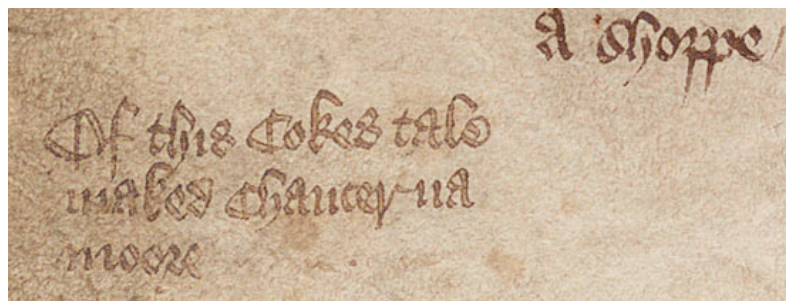 A shoppe
Of this Cokes tale
maked Chaucer na
moore